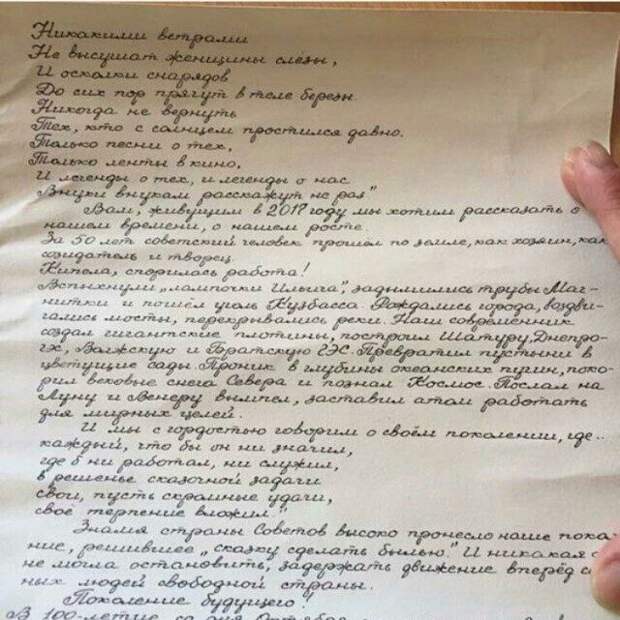 Никакими ветрами
Не высушат женщины слёзы,
И осколки снарядов
До сих пор прячут в теле березы.
Никогда не вернуть
Тех, кто с солнцем простился давно.
Только песни о тех,
Только ленты в кино,
И легенды о тех, и легенды о нас
Внуки внукам расскажут не раз"
Вам, живущим в 2017 году мы хотим рассказать о
нашем времени, о нашем росте.
За 50 лет советский человек прошел по земле, как хозяин, как
созидатель и творец.
Кипела, спорилась работа!
Вспыхнули „лампочки Ильича", задымились трубы Маг-
нитки и пошёл уголь Кузбасса. Рождались города, воздви-
гались мосты, перекрывались реки. Наш современник
создал гигантские плотины, построил Шатуру, Днепро-
гэс, Волжскую и Братскую ГЭС. Превратил пустыни в
цветущие сады. Проник в глубины океанских пучин, поко-
рил вековые снега Севера и познал Космос. Послал на
Луну и Венеру вымпел, заставил атом работать
для мирных целей.
И мы с гордостью говорим о своём поколении, где..
каждый, что бы он ни значил,
где б ни работал, ни служил,
в решенье сказочной задачи
свои, пусть скромные удачи,
своё терпение вложил."
Знамя страны Советов высоко пронесло наше поко
ние, решившее „сказку сделать былью." И никакая с
не могла остановить, задержать движение вперёд со
ных людей свободной страны.
Поколение будущего!
В 100-летие со дня